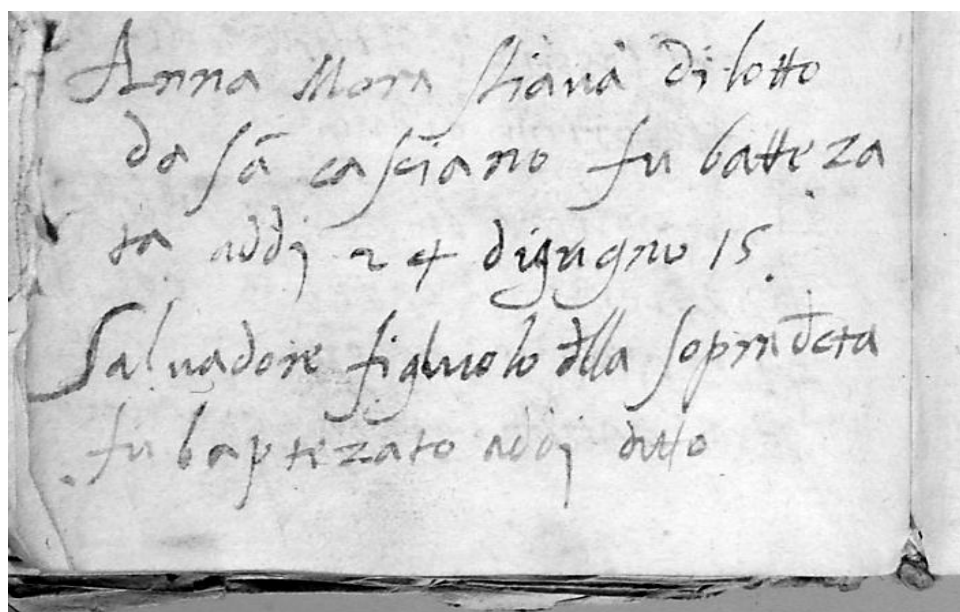 Anna Mora stiava di lotto
da sā casciano fu batteza
ta addj 24 digugno 15.
Salvadore figluolo della sopradeta
fu baptezato addj ditto